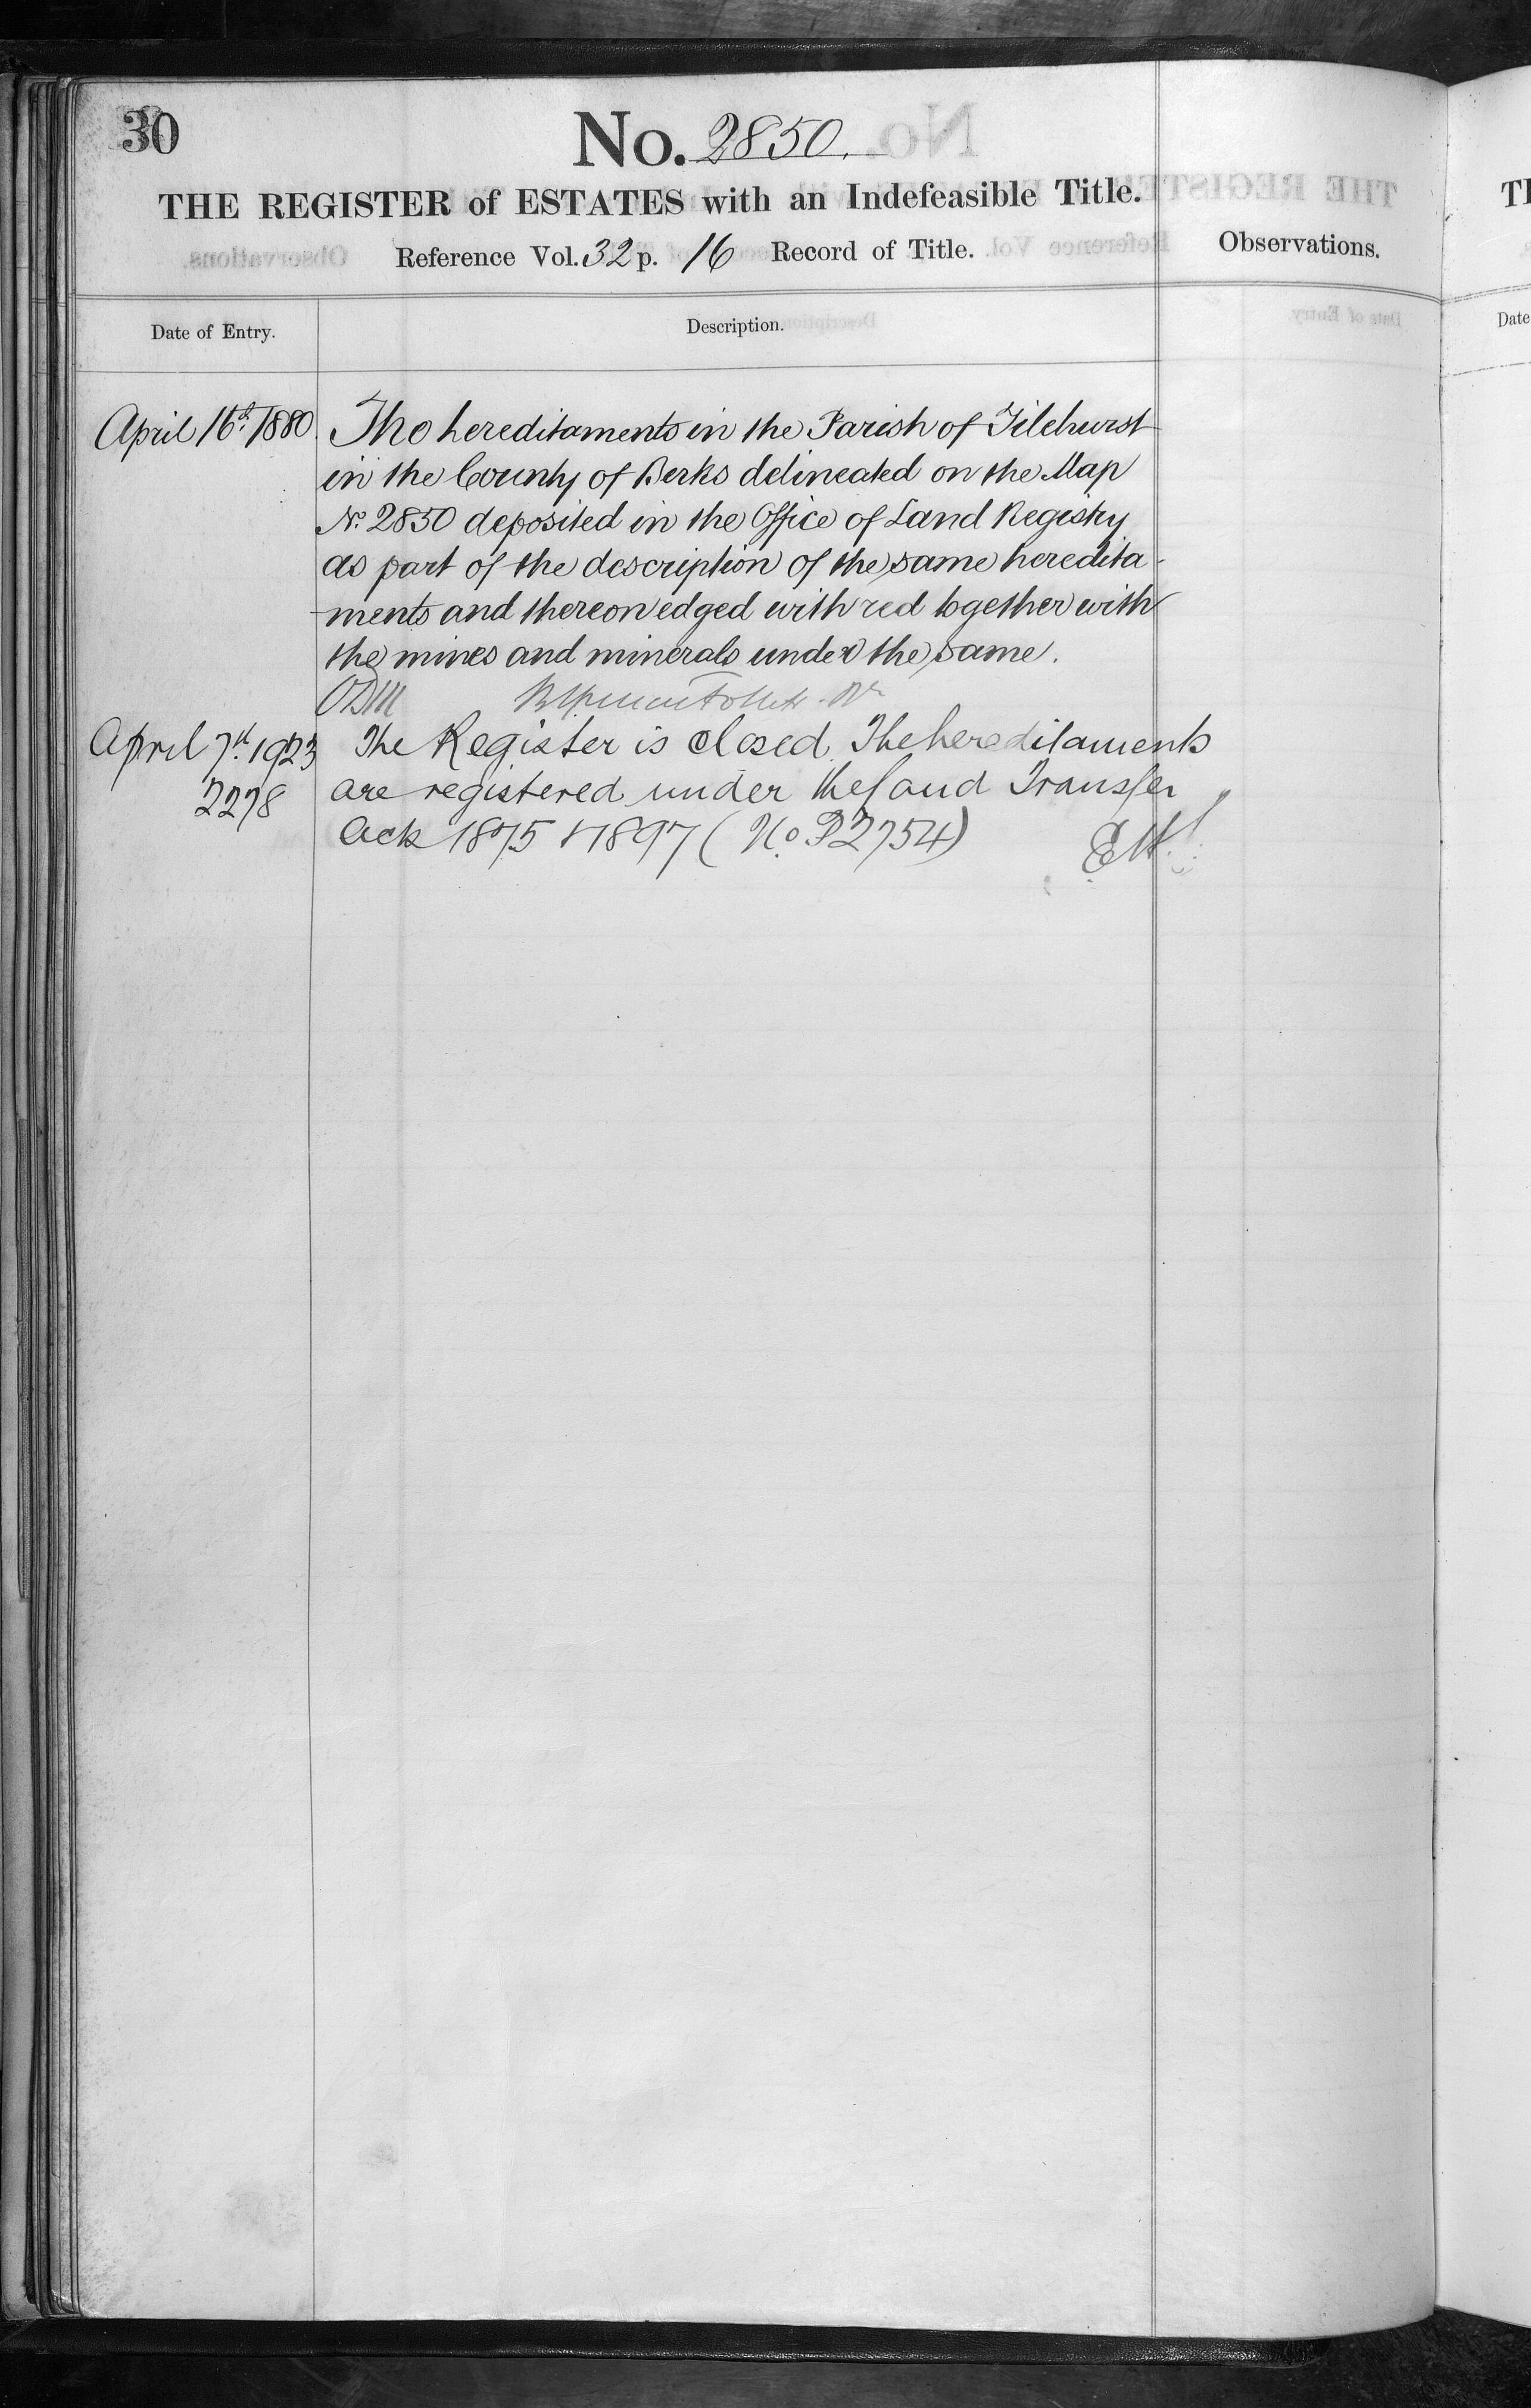 30
No. 2850.
THE REGISTER of ESTATES with an Indefeasible Title.
Reference Vol. 32 p. 16 Record of Title.
Observations.
Date of Entry.
Description.
April 16th 1880. The hereditaments in the Parish of Tilehurst
in the County of Berks delineated on the Map
No. 2850 deposited in the Office of Land Registry
as part of the description of the same heredita-
ments and thereon edged with red together with
the mines and minerals under the same.
April 7th 1923 The Register is closed. The hereditaments
2278 are registered under the Land Transfer
Acts 1875 & 1897 (No. P2754)
TH
Date